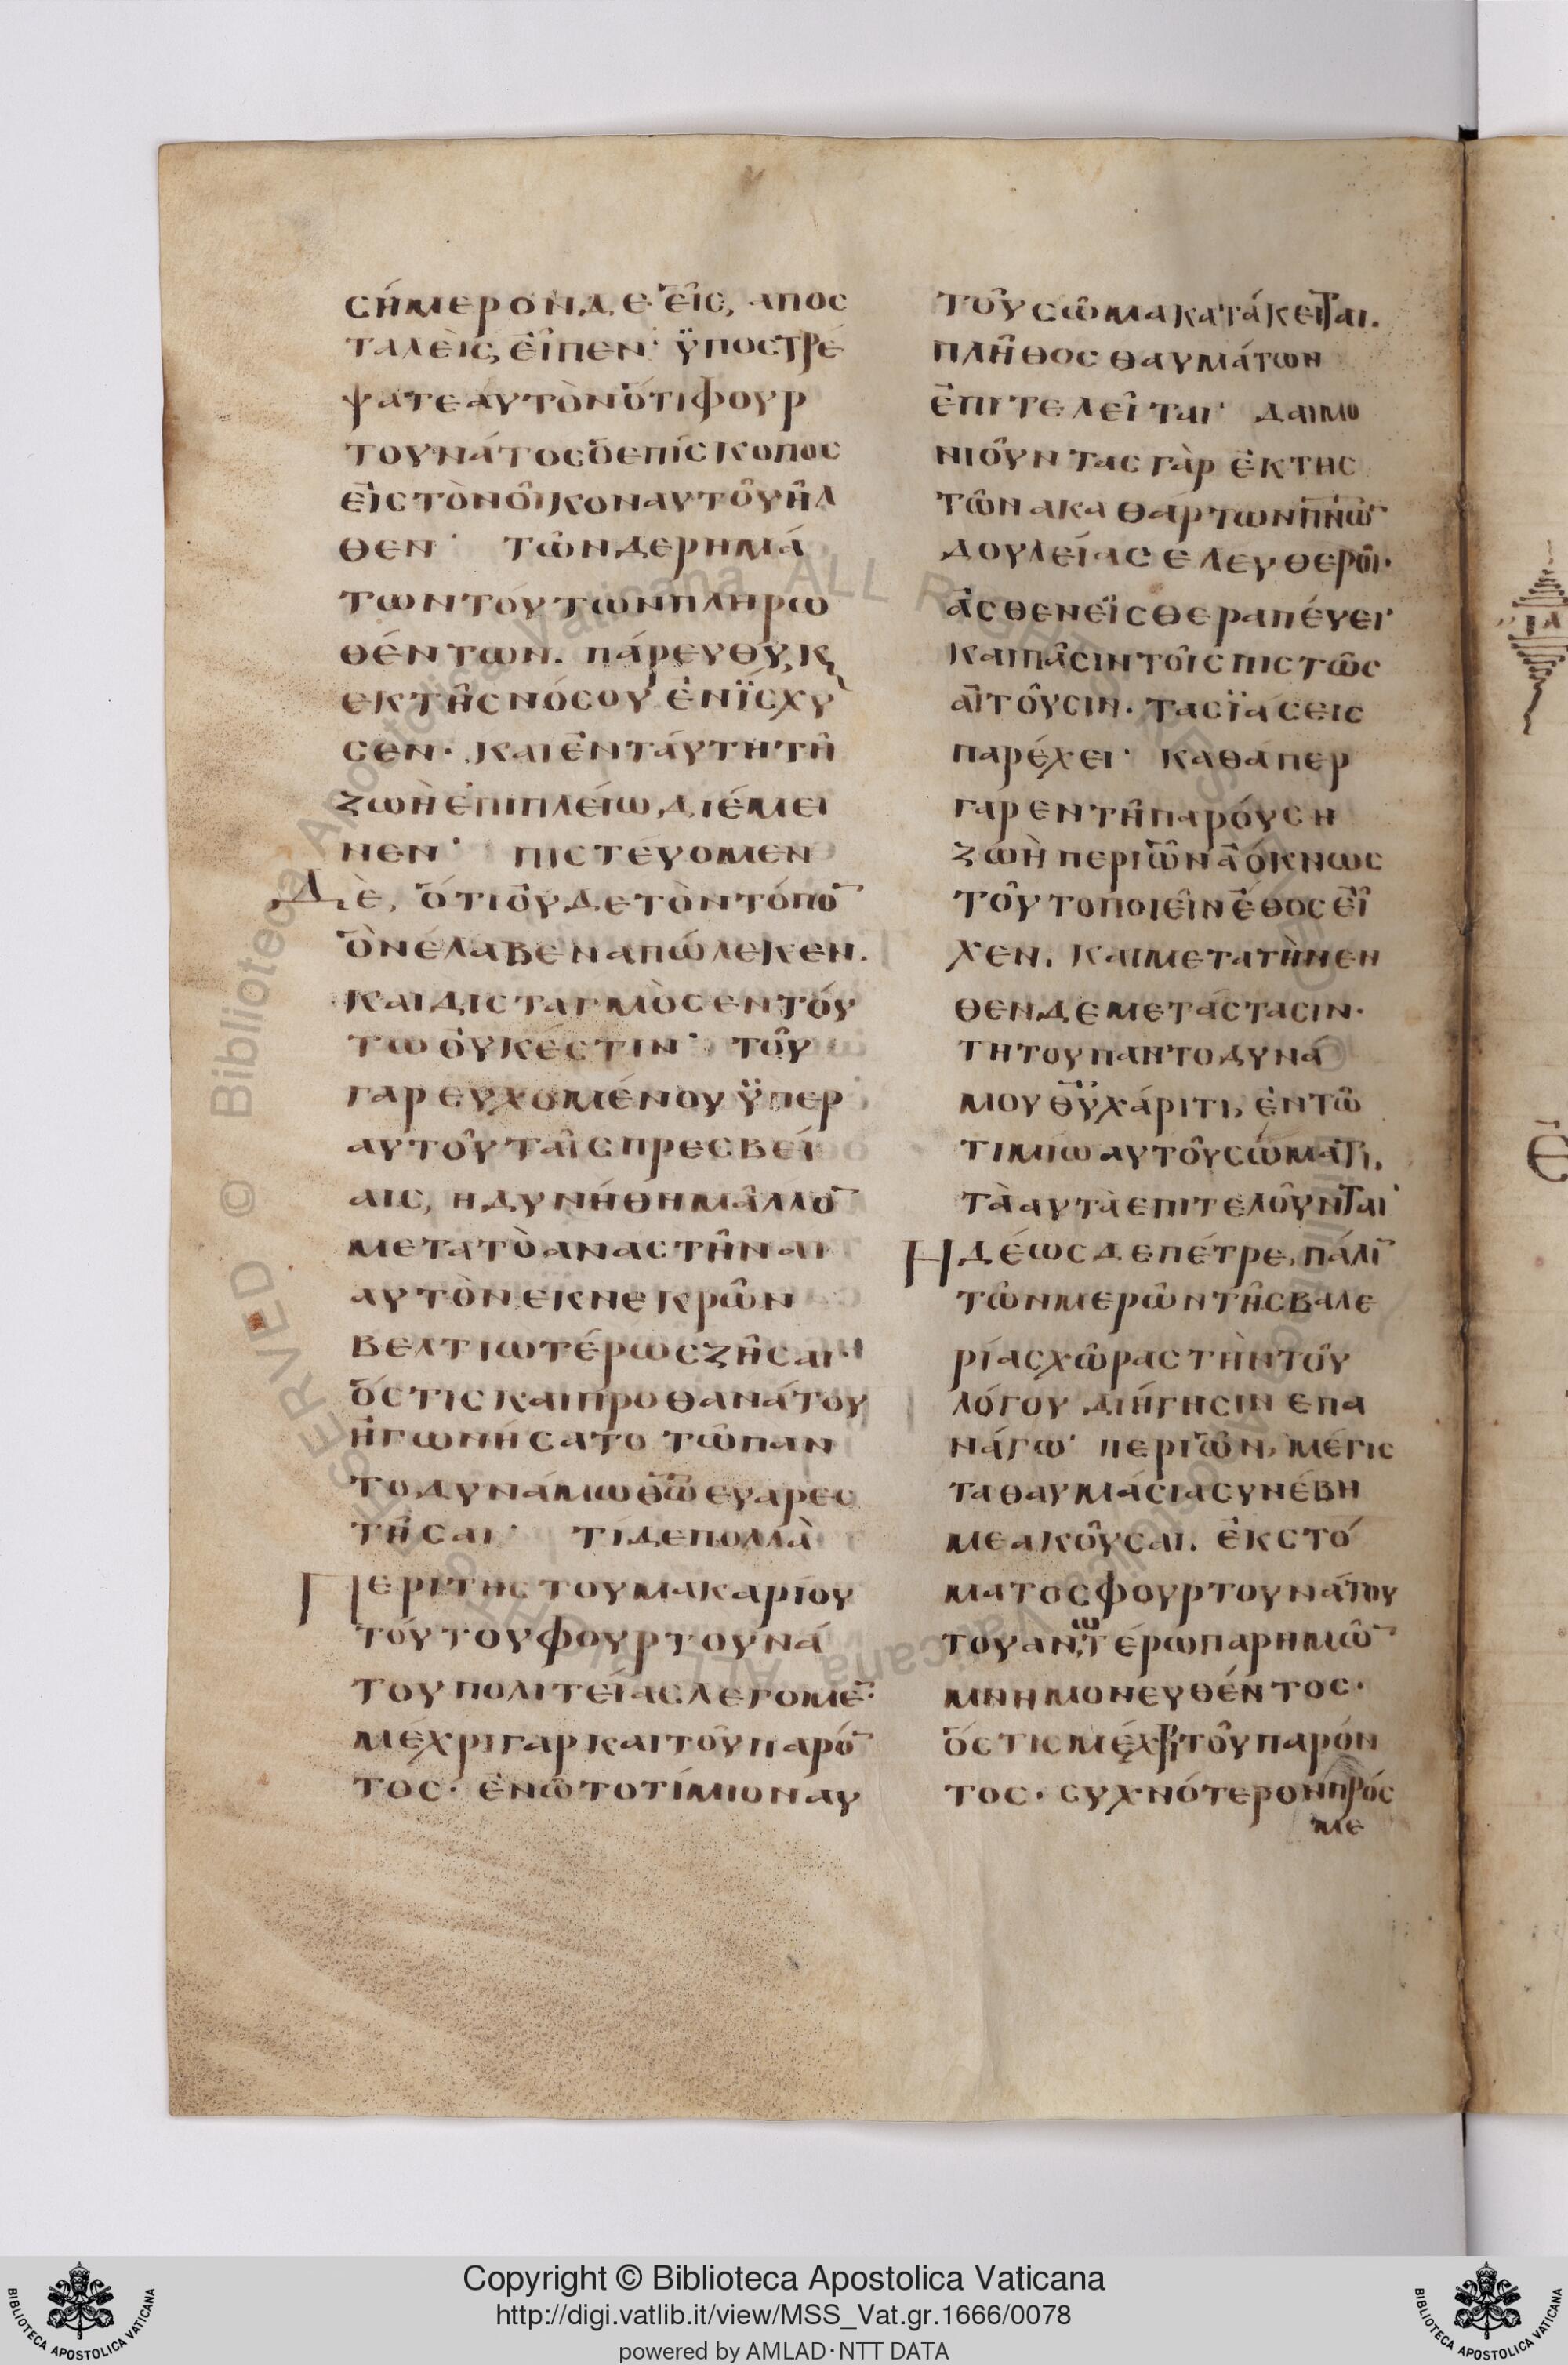 σήμερον δὲ εἷς, αποσ
ταλεὶς, εἶπεν· ϋποστρέ
ψατε ἀυτὸν ὅτι φουρ
τουνάτος ὁ επίσκοπος
εἰς τὸν οἶκον αυτοῦ ἦλ
θεν· τῶν δε ρημά
των τούτων πληρω
θέντων. πάρευθὺ, κ
εκ τῆς νόσου ἐνϊσχυ
σεν· και ἐν ταύτη τῆ
ζωὴ ἐπιπλείω διέμει
νεν· πιστεύομεν
Δὲ, ὅτι οὐδε τὸν τόπο̅
ὃν έλαβεν απώλεκεν.
και δισταγμὸς εν τού
τω οὐκ έστιν· τοῦ
γαρ ευχομένου ϋπερ
αυτοῦ ταῖς πρεσβεί
αις, ηδυνήθη μᾶλλο̅
μετα τὸ αναστῆναι
αυτὸν εκ νεκρῶν
βελτιωτέρως ζῆσαι·
ὅστις και προ θανάτου
ἠγωνήσατο τῶ παν
τοδυνάμω θ̅ω̅ ευαρεσ
τῆσαι· τί δε πολλὰ
Περι της του μακαρίου
τούτου φουρτουνά
του πολιτείας λεγομε̅·
μέχρι γαρ και τοῦ παρό̅
τος· ἐν ῶ το τίμιον αυ
τοῦ σῶμα κατάκειται.
πλῆθος θαυμάτων
ἐπιτελεῖται· δαιμο
νιοῦντας γὰρ ἐκ της
τῶν ακαθάρτων π̅ν̅ω̅
δουλείας ελευθεροῖ·
ἀσθενεῖς θεραπέυει·
και πᾶσιν τοῖς πιστῶς
αἰτοῦσιν. τας ϊάσεις
παρέχει· καθάπερ
γαρ εν τῆ παρόυση
ζωὴ περιῶν ἀόκνως
τοῦτο ποιεῖν ἔθος εἶ
χεν. και μετα τὴν εν
θένδε μετάστασιν·
τη του παντοδυνά
μου θ̅υ̅ χάριτι, ἐν τῶ
τιμίω αυτοῦ σώματι.
τὰ αυτὰ επιτελοῦνται·
Ηδέως δε πέτρε, πάλι̅
τῶν μερῶν τῆς βαλε
ρίας χῶρας τὴν τοῦ
λόγου διήγησιν επα
νάγω· περι ῶν, μέγισ
τα θαυμάσια συνέβη
με ακοῦσαι. ἐκ στό
ματος φουρτουνάτου
του ανωτέρω παρ ημῶ̅
μνημονευθέντος·
ὅστις μέχρι τοῦ παρόν
τος· συχνότερον πρός
με
Copyright © Biblioteca Apostolica Vaticana
http://digi.vatlib.it/view/MSS_Vat.gr.1666/0078
powered by AMLAD·NTT DATA